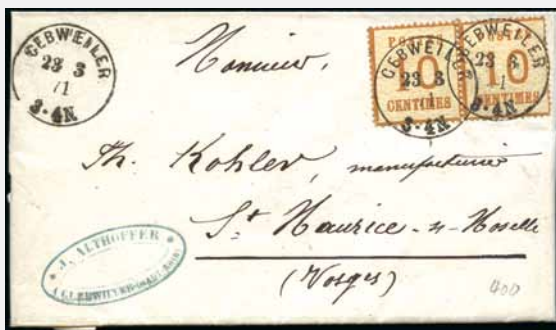 GEBWEILER
23 3
71
3-4N
POSTES
10
CENTIMES
GEBWEILER
23 3
71
3-4N
10
CENTIMES
GEBWEILER
23 3
71
3-4N
Monsieur,
Th. Kohler, manufacturier
St Maurice s/ Moselle
(Vosges)
J. ALTHOFFER
A GUEBWILLER (HAUT-RHIN)
400